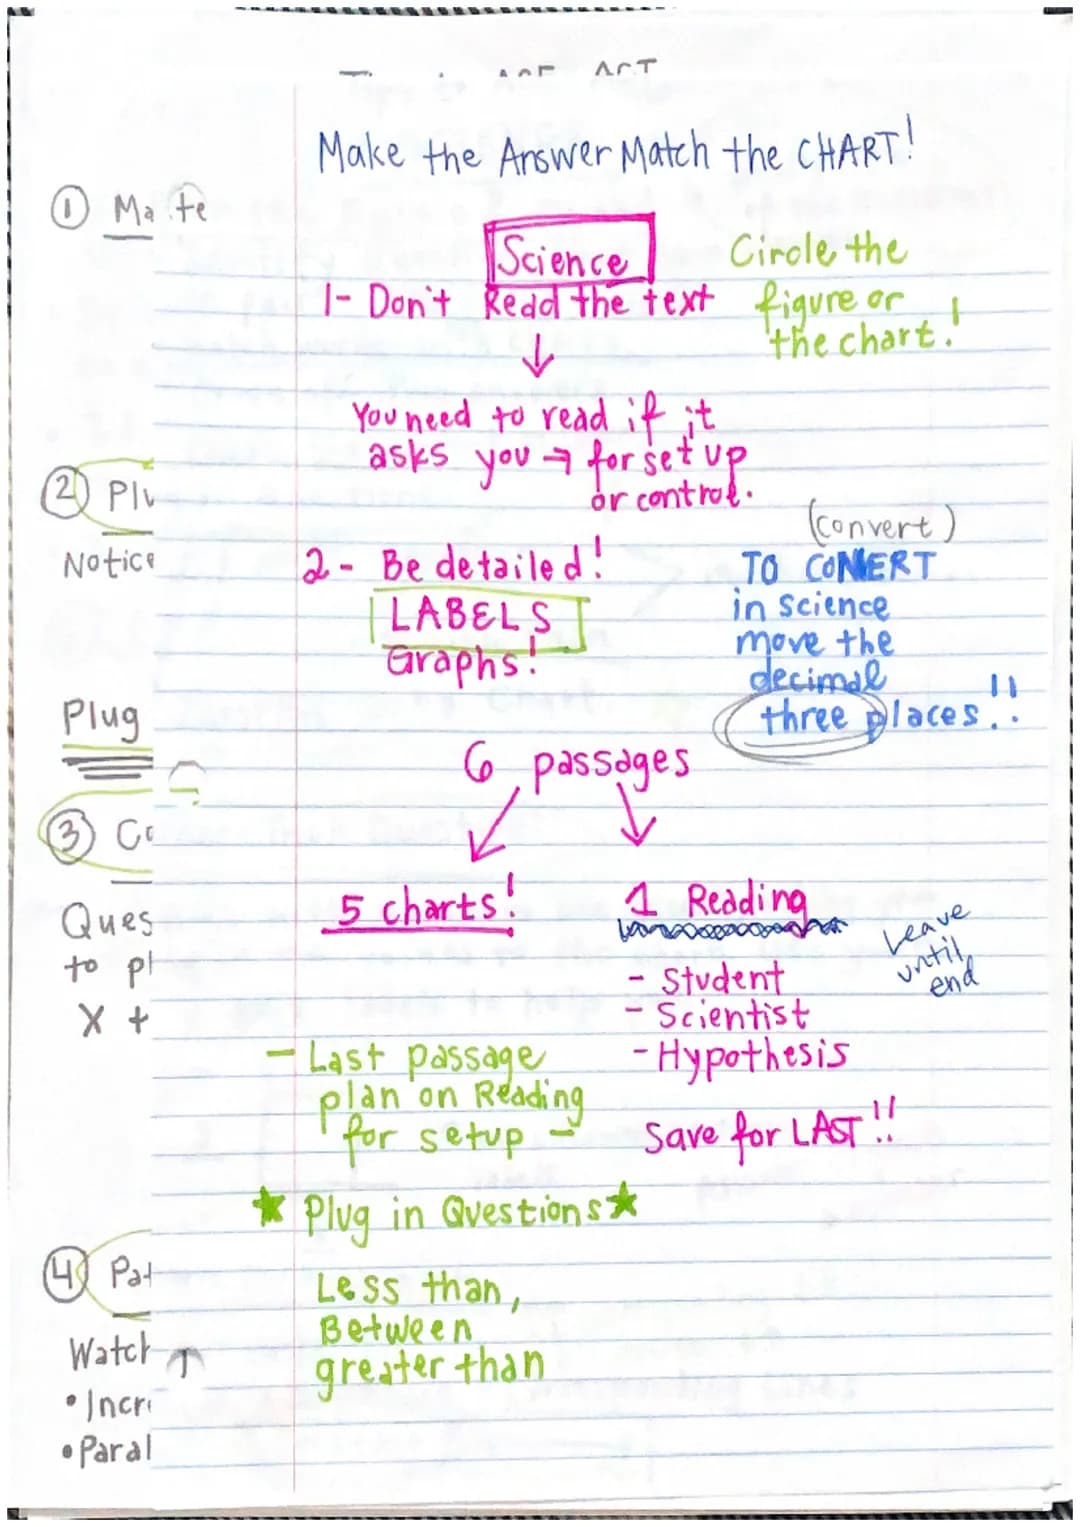 ACT
Make the Answer Match the CHART!
① Ma te
Science
Circle the
figure or
the chart!
1- Don't Read the text
↓
You need to read if it
asks you → for set up
or control.
② Plu
Notice
(convert)
2- Be detailed!
LABELS
Graphs!
TO CONVERT
in science
move the
decimal
three places!!
Plug
6 passages
③ Co
5 charts!
1 Reading
Leave
until
end
Ques
to pl
X +
- Student
- Scientist
- Hypothesis
- Last passage
plan on Reading
for setup -
Save for LAST!!
★ Plug in Questions ★
④ Pat
Less than,
Between
greater than
Watch
• Incr
• Paral